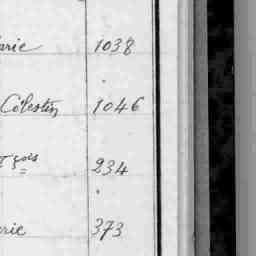 arie 1038
Célestin 1046
çois 234
erie 373